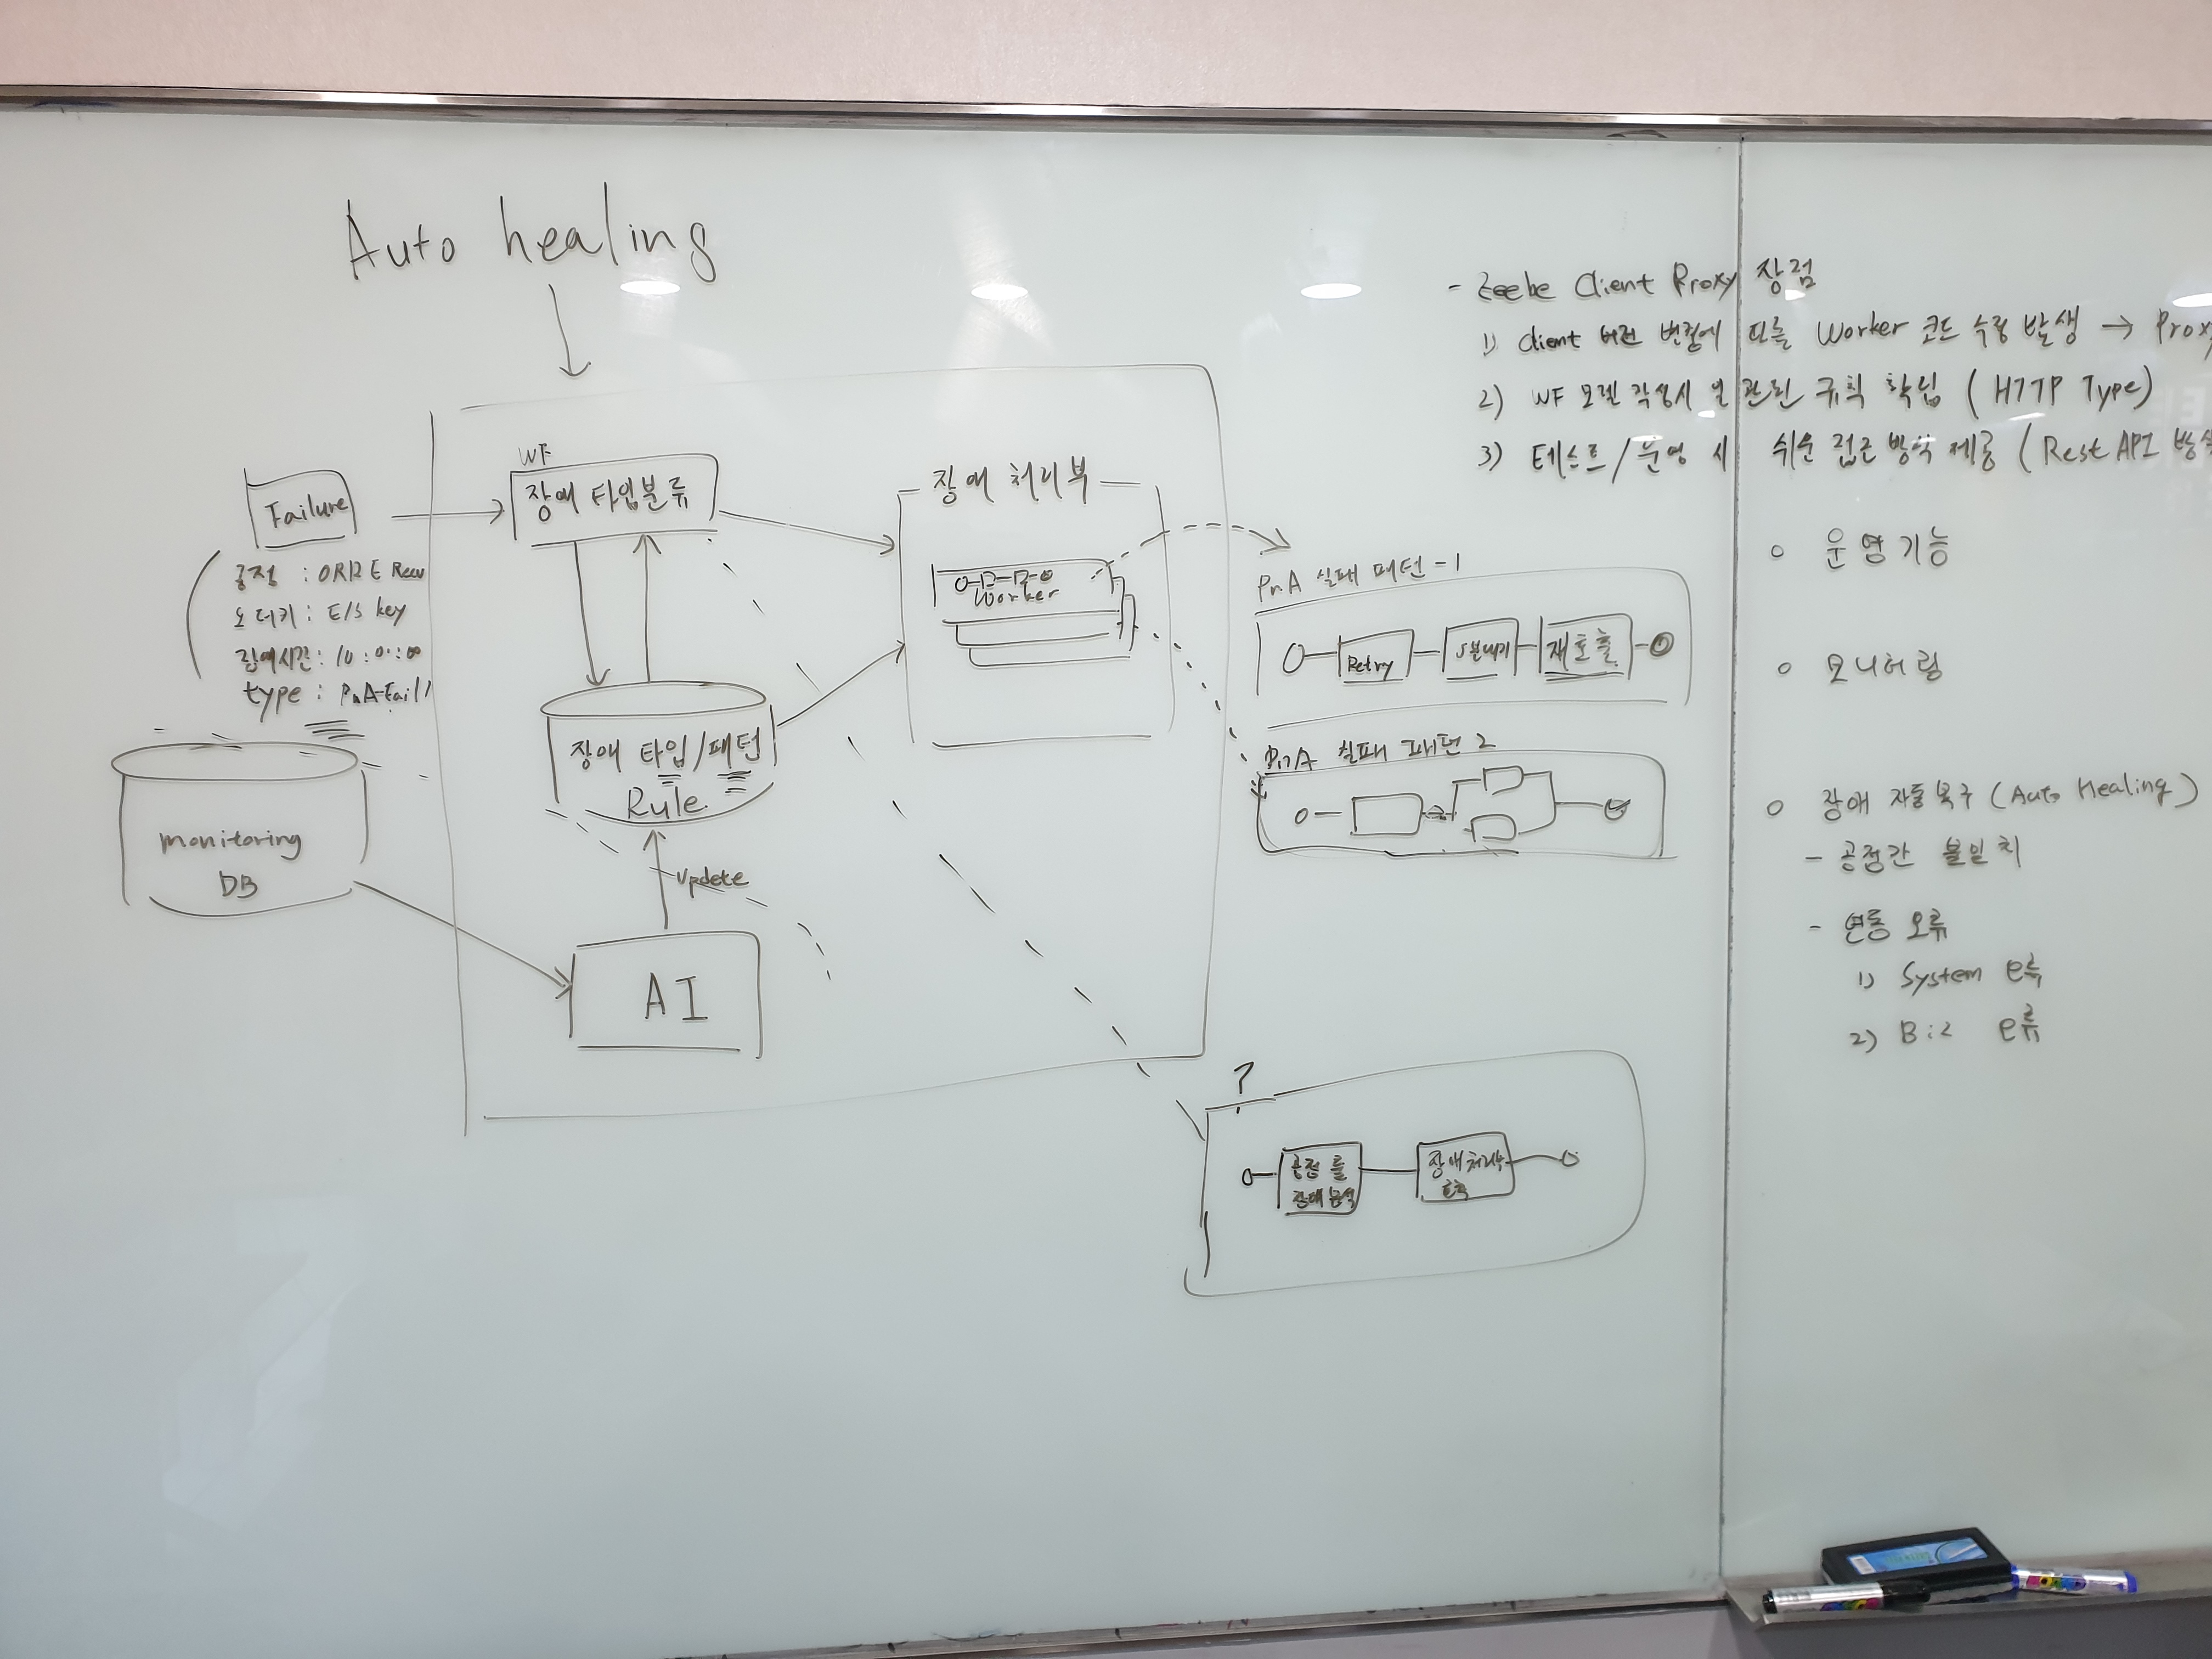 Auto healing
Failure
공정 : ORDE Recv
오더키 : E/S key
장애시간 : 10 : 01 : 00
type : PnA-Fail1
monitoring
DB
WF
장애 타입분류
장애 타입/패턴
Rule
update
AI
장애 처리부
Worker
PnA 실패 패턴 -1
Retry
5분대기
재호출
PnA 실패 패턴 2
?
공정 룰
장애 분석
장애처리부
호출
- Zeebe Client Proxy 장점
1) Client 버전 변경에 따른 Worker 코드 수정 발생 → Proxy
2) WF 모델 작성시 일관된 규칙 확립 ( HTTP Type )
3) 테스트/운영 시 쉬운 접근 방식 제공 ( Rest API 방식
○ 운영기능
○ 모니터링
○ 장애 자동복구 ( Auto Healing )
- 공정간 불일치
- 연동 오류
1) System 오류
2) Biz 오류